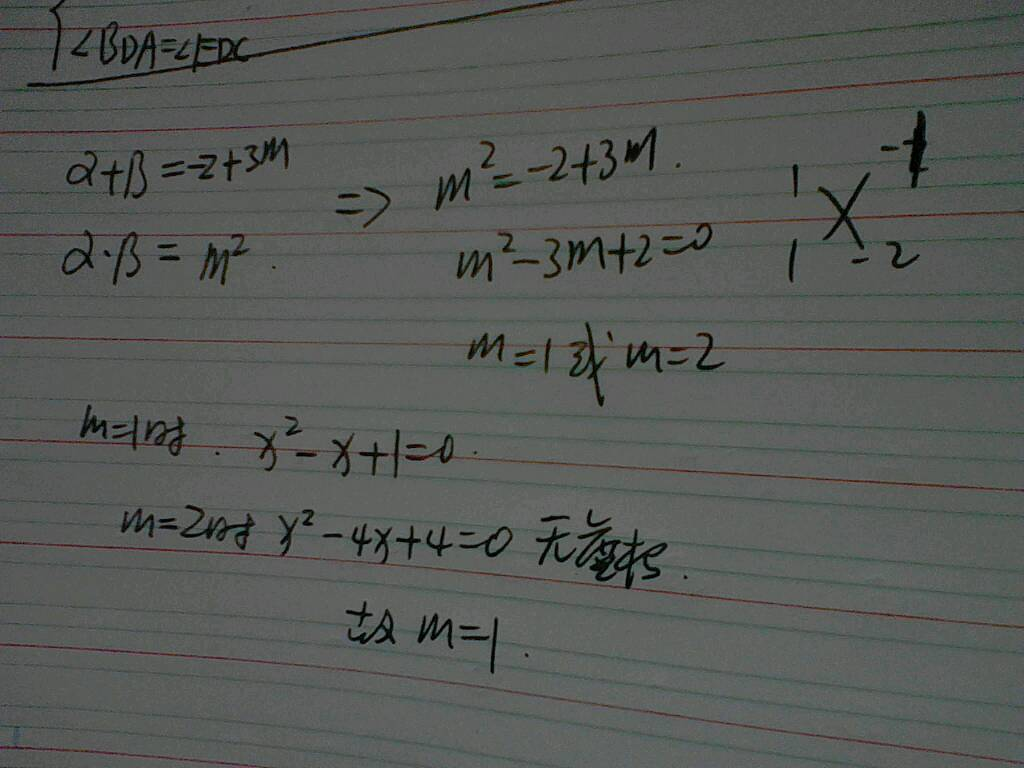 ∠BDA=∠FDC
α+β=-2+3m
α·β=m².
⇒ m²=-2+3m.
m²-3m+2=0
1 -1
1 -2
m=1或m=2
m=1时. x²-x+1=0.
m=2时 x²-4x+4=0 无
故 m=1.